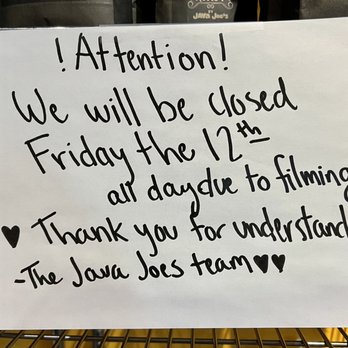 JAVA JOE'S
! Attention!
We will be closed
Friday the 12th
all day due to filming
♥ Thank you for understand
-The Java Joes team ♥♥